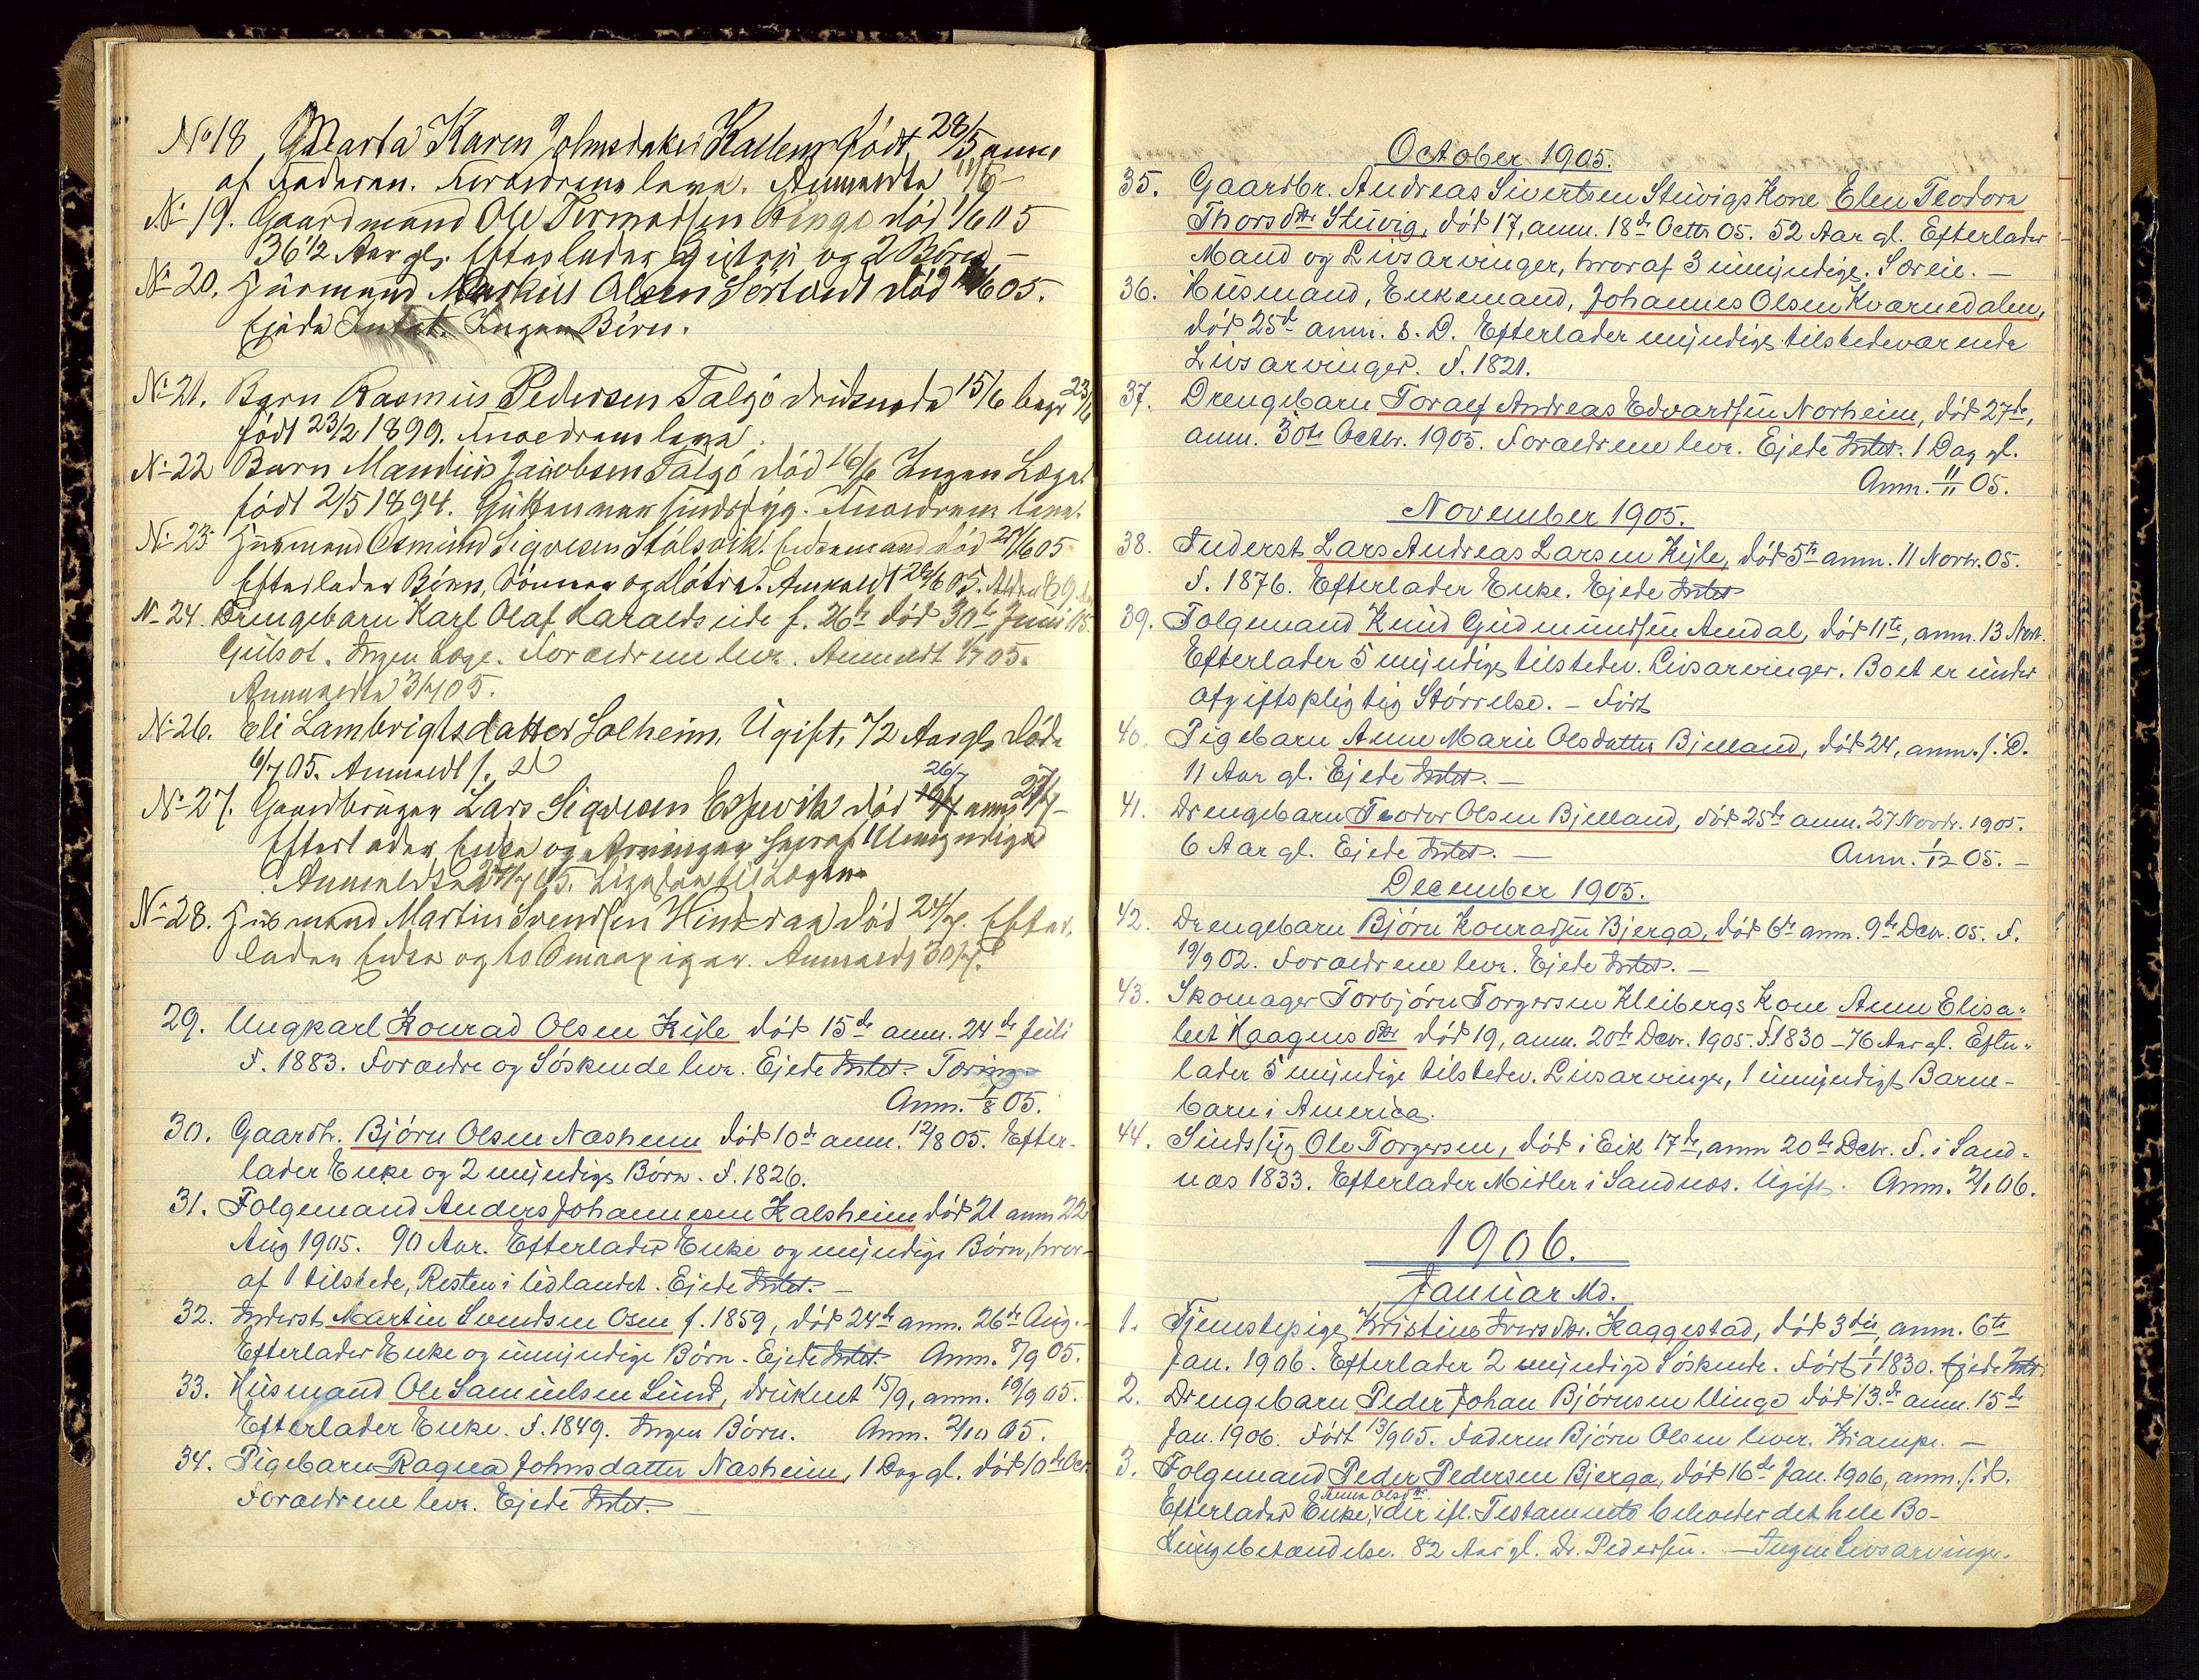 No 18 Marta Karen Johnsdatter Kallem født 28/5 anm.
af Faderen. Forældrene leve. Anmeldte 11/6 -
No 19. Gaardmand Ole Tormodsen Vinge død 1/6 05
36 1/2 Aar gl. Efterlader Gister og 2 Børn -
No 20. Husmand Markus Olsen død 6 05.
Ejede Intet. Ingen Børn.
No 21. Barn Rasmus Pedersen Talgø druknede 15/6 begr 23/6
født 23/2 1899. Forældrene leve.
No 22 Barn Mandius Jacobsen Talgø død 16/6 Ingen Læge.
født 2/5 1894. Gutten var sindssyg. Forældrene leve.
No 23 Husmand Osmund Sigvesen Stølsvik. Enkemand død 27/6 05
Efterlader Børn, Sønner og Døtre. Anmeldt 28/6 05.
No 24. Drengebarn Karl Olaf Haraldseide f. 26de død 30te Juni 05.
Gulsot. Ingen Læge. Forældrene leve. Anmeldt 1/7 05.
Anmeldte 3/7 05.
No 26. Eli Lambrigtsdatter Solheim, Ugift, 72 Aar gl, død
6/7 05. Anmeldt s. D
26/7
No 27. Gaardbruger Lars Sigvesen Espevik død 19/7 anm 27/7 -
Efterlader Enke og Arvinger hvoraf 1 Umyndige
Anmeldte 05. til Lægen
No 28. Husmand Martin Svendsen Hinderaa død 24/7. Efter-
lader Enke og to Smaapiger. Anmeldt 30/7.
29. Ungkarl Konrad Olsen Kyle død 15de anm. 24de Juli
F. 1883. Forældre og Søskende leve. Ejede Intet. Tæring
Anm. 1/8 05.
30. Gaardb. Bjørn Olsen Næsheim død 10de anm. 12/8 05. Efter-
lader Enke og 2 myndige Børn. F. 1826.
31. Folgemand Anders Johannesen Kalsheim død 21 anm 22
Aug 1905. 90 Aar. Efterlader Enke og myndige Børn, hvor-
af 1 tilstede, Resten i Udlandet. Ejede Intet. -
32. Inderst Martin Svendsen Osen f. 1859, død 24de anm. 26de Aug.
Efterlader Enke og umyndige Børn. Ejede Intet. Anm. 8/9 05.
33. Husmand Ole Samuelsen Lund, druknet 15/9, anm. 18/9 05.
Efterlader Enke. F. 1849. Ingen Børn. Anm. 2/10 05.
34. Pigebarn Ragna Johnsdatter Næsheim, 1 Dag gl. død 10de Oct.
Forældrene leve. Ejede Intet. -
October 1905.
35. Gaardbr. Andreas Sivertsen Stuvigs Kone Elen Teodora
Thorsdtr Stuvig, død 17, anm. 18de Octbr 05. 52 Aar gl. Efterlader
Mand og Livsarvinger, hvoraf 3 umyndige. Særeie. -
36. Husmand, Enkemand, Johannes Olsen Kvernedalen,
død 25de anm. s. D. Efterlader myndige tilstedeværende
Livsarvinger. F. 1821.
37. Drengebarn Toralf Andreas Edvardsen Norheim, død 27de,
anm. 30te Octbr. 1905. Forældrene leve. Ejede Intet. 1 Dag gl.
Anm. 11/11 05.
November 1905.
38. Inderst Lars Andreas Larsen Kyle, død 5te anm. 11 Novbr. 05.
F. 1876. Efterlader Enke. Ejede Intet
39. Folgemand Knud Gudmundsen Amdal, død 11te, anm. 13 Nov.
Efterlader 5 myndige tilstedev. Livsarvinger. Boet er under
afgiftspligtig Størrelse. - Født
40. Pigebarn Anne Marie Olsdatter Bjelland, død 24, anm. s. D.
11 Aar gl. Ejede Intet. -
41. Drengebarn Teodor Olsen Bjelland, død 25de anm. 27 Novbr. 1905.
6 Aar gl. Ejede Intet. - Anm. 1/12 05. -
December 1905.
42. Drengebarn Bjørn Konradsen Bjerga, død 6te anm. 9de Dcbr. 05. F.
19/9 02. Forældrene leve. Ejede Intet. -
43. Skomager Torbjørn Torgersen Kleibergs Kone Anne Elisa-
bet Haagensdtr død 19, anm. 20de Dcbr. 1905. F. 1830 - 76 Aar gl. Efter-
lader 5 myndige tilstedev. Livsarvinger, 1 umyndigt Barne-
barn i America.
44. Sindssyg Ole Torgersen, død i Eik 17de, anm 20de Dcbr. F. i Sand-
næs 1833. Efterlader Midler i Sandnæs. Ugift. Anm. 2/1 06.
1906.
Januar Md.
1. Tjenestepige Kristine Iversdtr. Haggestad, død 3die, anm. 6te
Jan. 1906. Efterlader 2 myndige Søskende. Født 1/1 1830. Ejede Intet.
2. Drengebarn Peder Johan Bjørnsen Vinge død 13de anm. 15de
Jan. 1906. Født 13/9 05. Faderen Bjørn Olsen lever. Krampe. -
3. Folgemand Peder Pedersen Bjerga, død 16de Jan. 1906, anm. s. D.
Anna Olsdtr.
Efterlader Enke, der ifl. Testamente beholder det hele Bo-
Ringe betændelse. 82 Aar gl. Dr. Pedersen. - Ingen Livsarvinger.